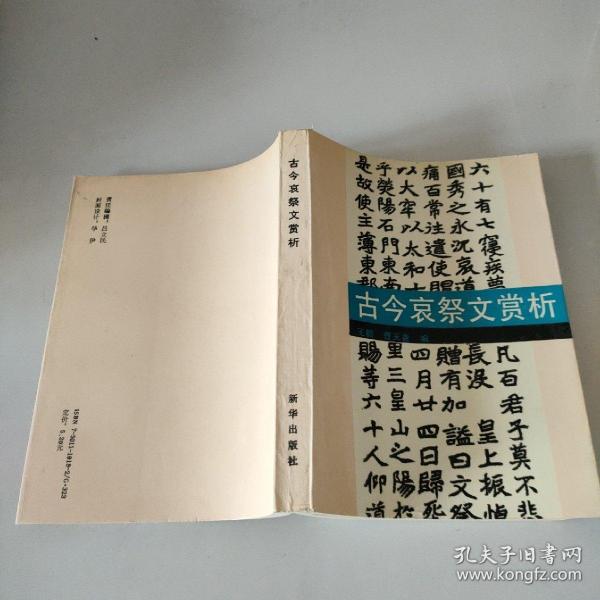 六十有七寝疾薨
國秀之永沉哀道
痛百常注遣使賜
以大牢以太和十
乎熒陽石門東南
是故使主薄東郡
古今哀祭文赏析
编
凡百君子莫不悲
長没 皇上振悼
贈有加 謚曰文祭
四月廿四日歸死
里三皇山之陽於
賜等六十人仰道
古今哀祭文赏析
新华出版社
责任编辑：吕立民
封面设计：华 伊
ISBN 7-5011-1819-2/G·323
定价：5.20元
孔夫子旧书网
www.kongfz.com